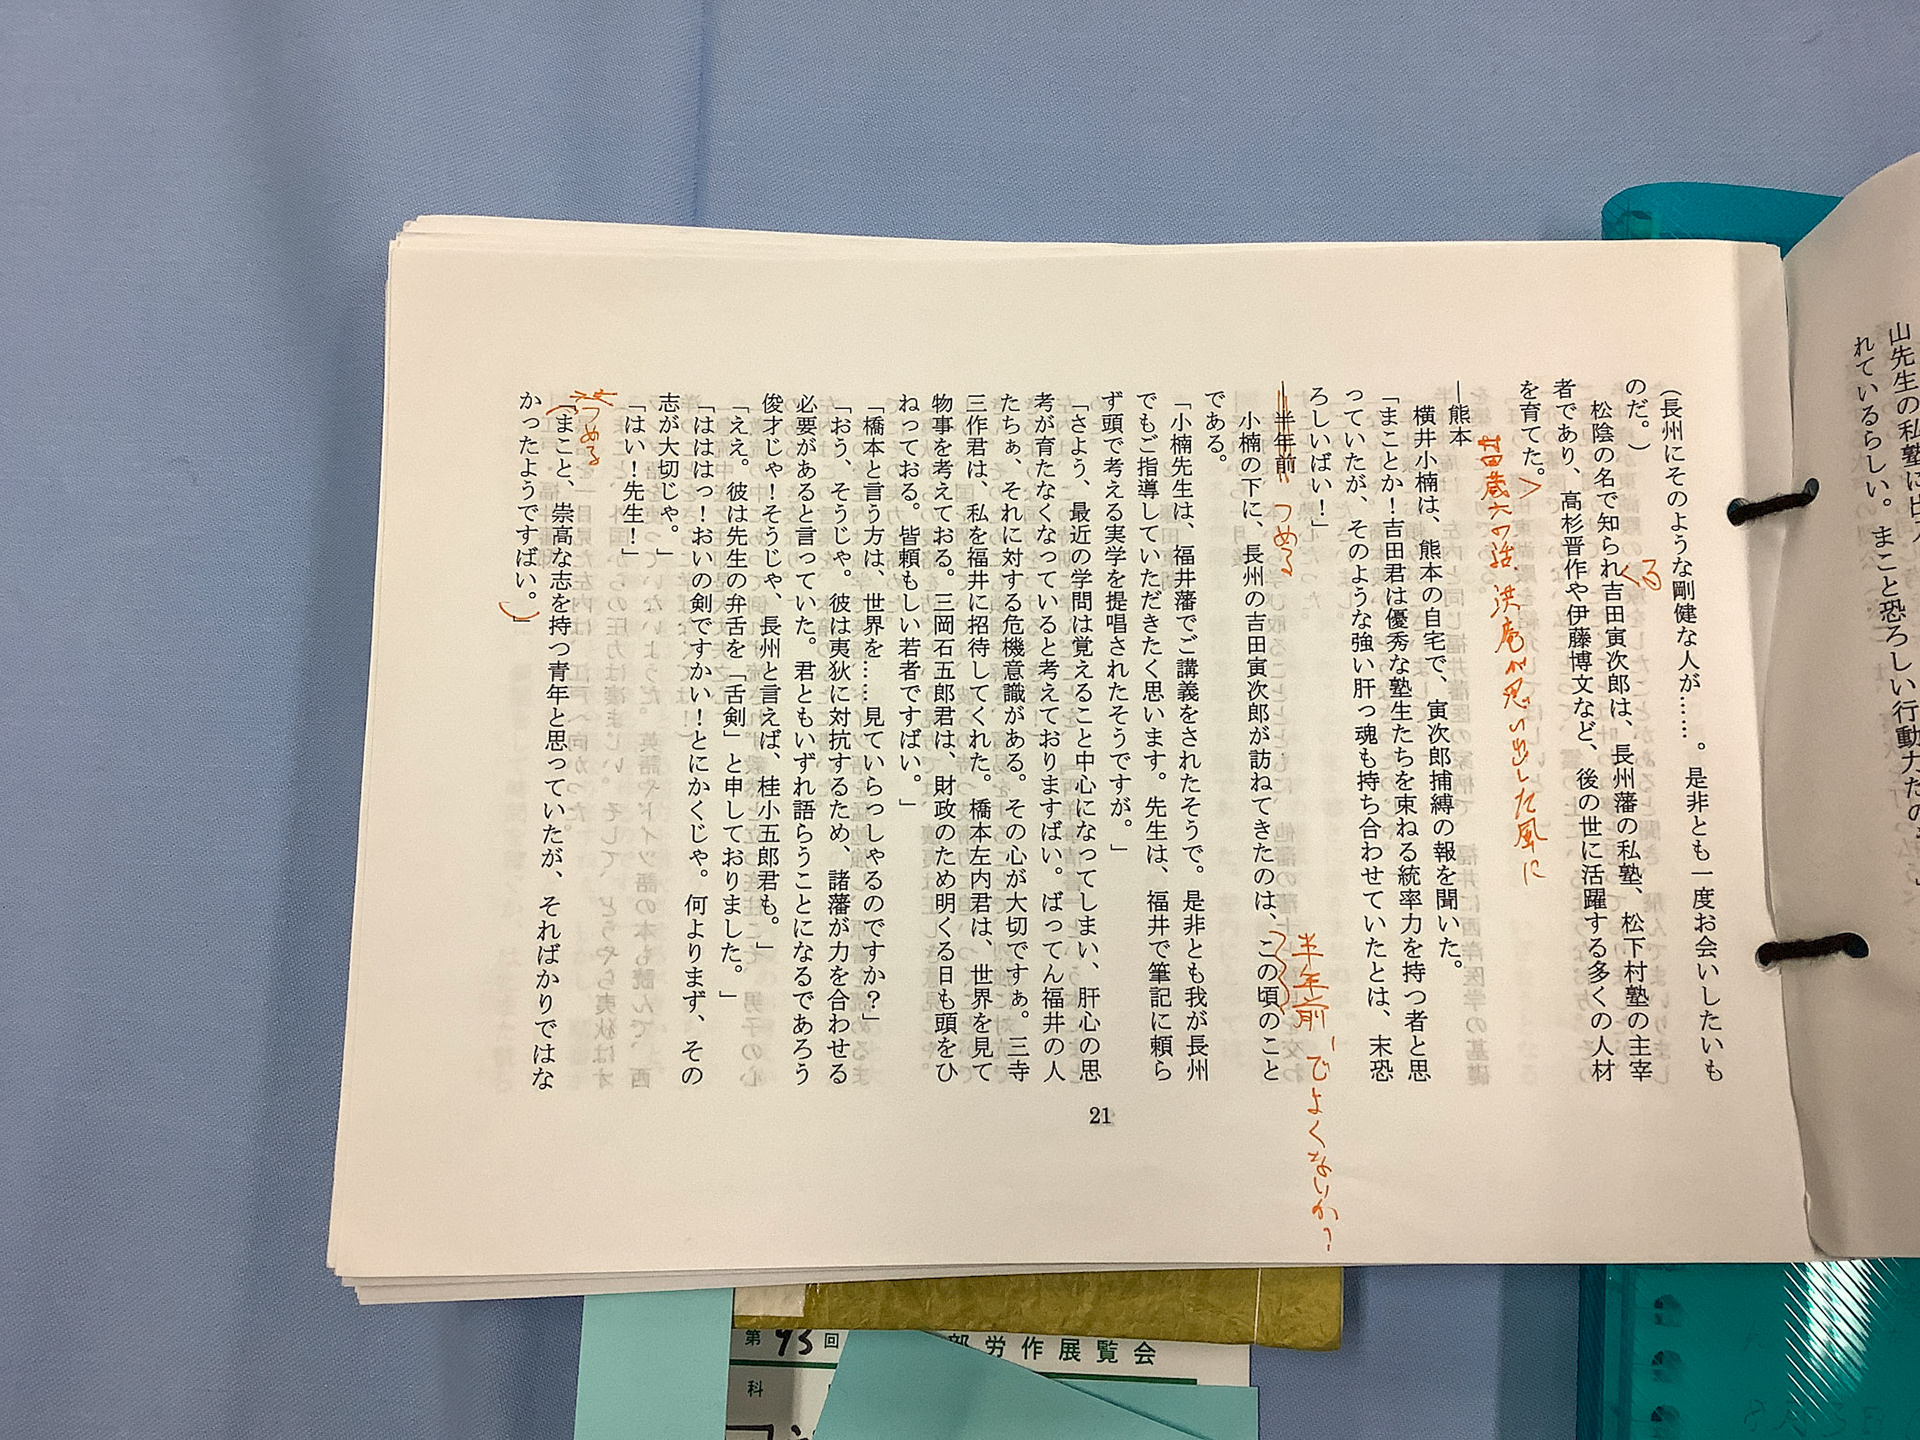 山先生の私塾に出入
れているらしい。まこと恐ろしい行動力だのう」
（長州にそのような剛健な人が……。是非とも一度お会いしたいも
のだ。）
松陰の名で知られ吉田寅次郎は、長州藩の私塾、松下村塾の主宰
る
者であり、高杉晋作や伊藤博文など、後の世に活躍する多くの人材
を育てた。
村田蔵六の話、洪庵が思い出した風に
―熊本
横井小楠は、熊本の自宅で、寅次郎捕縛の報を聞いた。
「まことか！吉田君は優秀な塾生たちを束ねる統率力を持つ者と思
っていたが、そのような強い肝っ魂も持ち合わせていたとは、末恐
ろしいばい！」
半年前
つめる
半年前、でよくないか？
小楠の下に、長州の吉田寅次郎が訪ねてきたのは、この頃のこと
である。
「小楠先生は、福井藩でご講義をされたそうで。是非とも我が長州
でもご指導していただきたく思います。先生は、福井で筆記に頼ら
ず頭で考える実学を提唱されたそうですが。」
「さよう、最近の学問は覚えること中心になってしまい、肝心の思
考が育たなくなっていると考えておりますすばい。ばってん福井の人
たちぁ、それに対する危機意識がある。その心が大切ですぁ。三寺
三作君は、私を福井に招待してくれた。橋本左内君は、世界を見て
物事を考えておる。三岡石五郎君は、財政のため明くる日も頭をひ
ねっておる。皆頼もしい若者ですばい。」
「橋本と言う方は、世界を……見ていらっしゃるのですか？」
「おう、そうじゃ。彼は夷狄に対抗するため、諸藩が力を合わせる
必要があると言っていた。君ともいずれ語らうことになるであろう
俊才じゃ！そうじゃ、長州と言えば、桂小五郎君も。」
「ええ。彼は先生の弁舌を「舌剣」と申しておりました。」
「はははっ！おいの剣ですかい！とにかくじゃ。何よりまず、その
志が大切じゃ。」
「はい！先生！」
つめる
「まこと、崇高な志を持つ青年と思っていたが、そればかりではな
かったようですばい。」
21
第93回
部労作展覧会
科